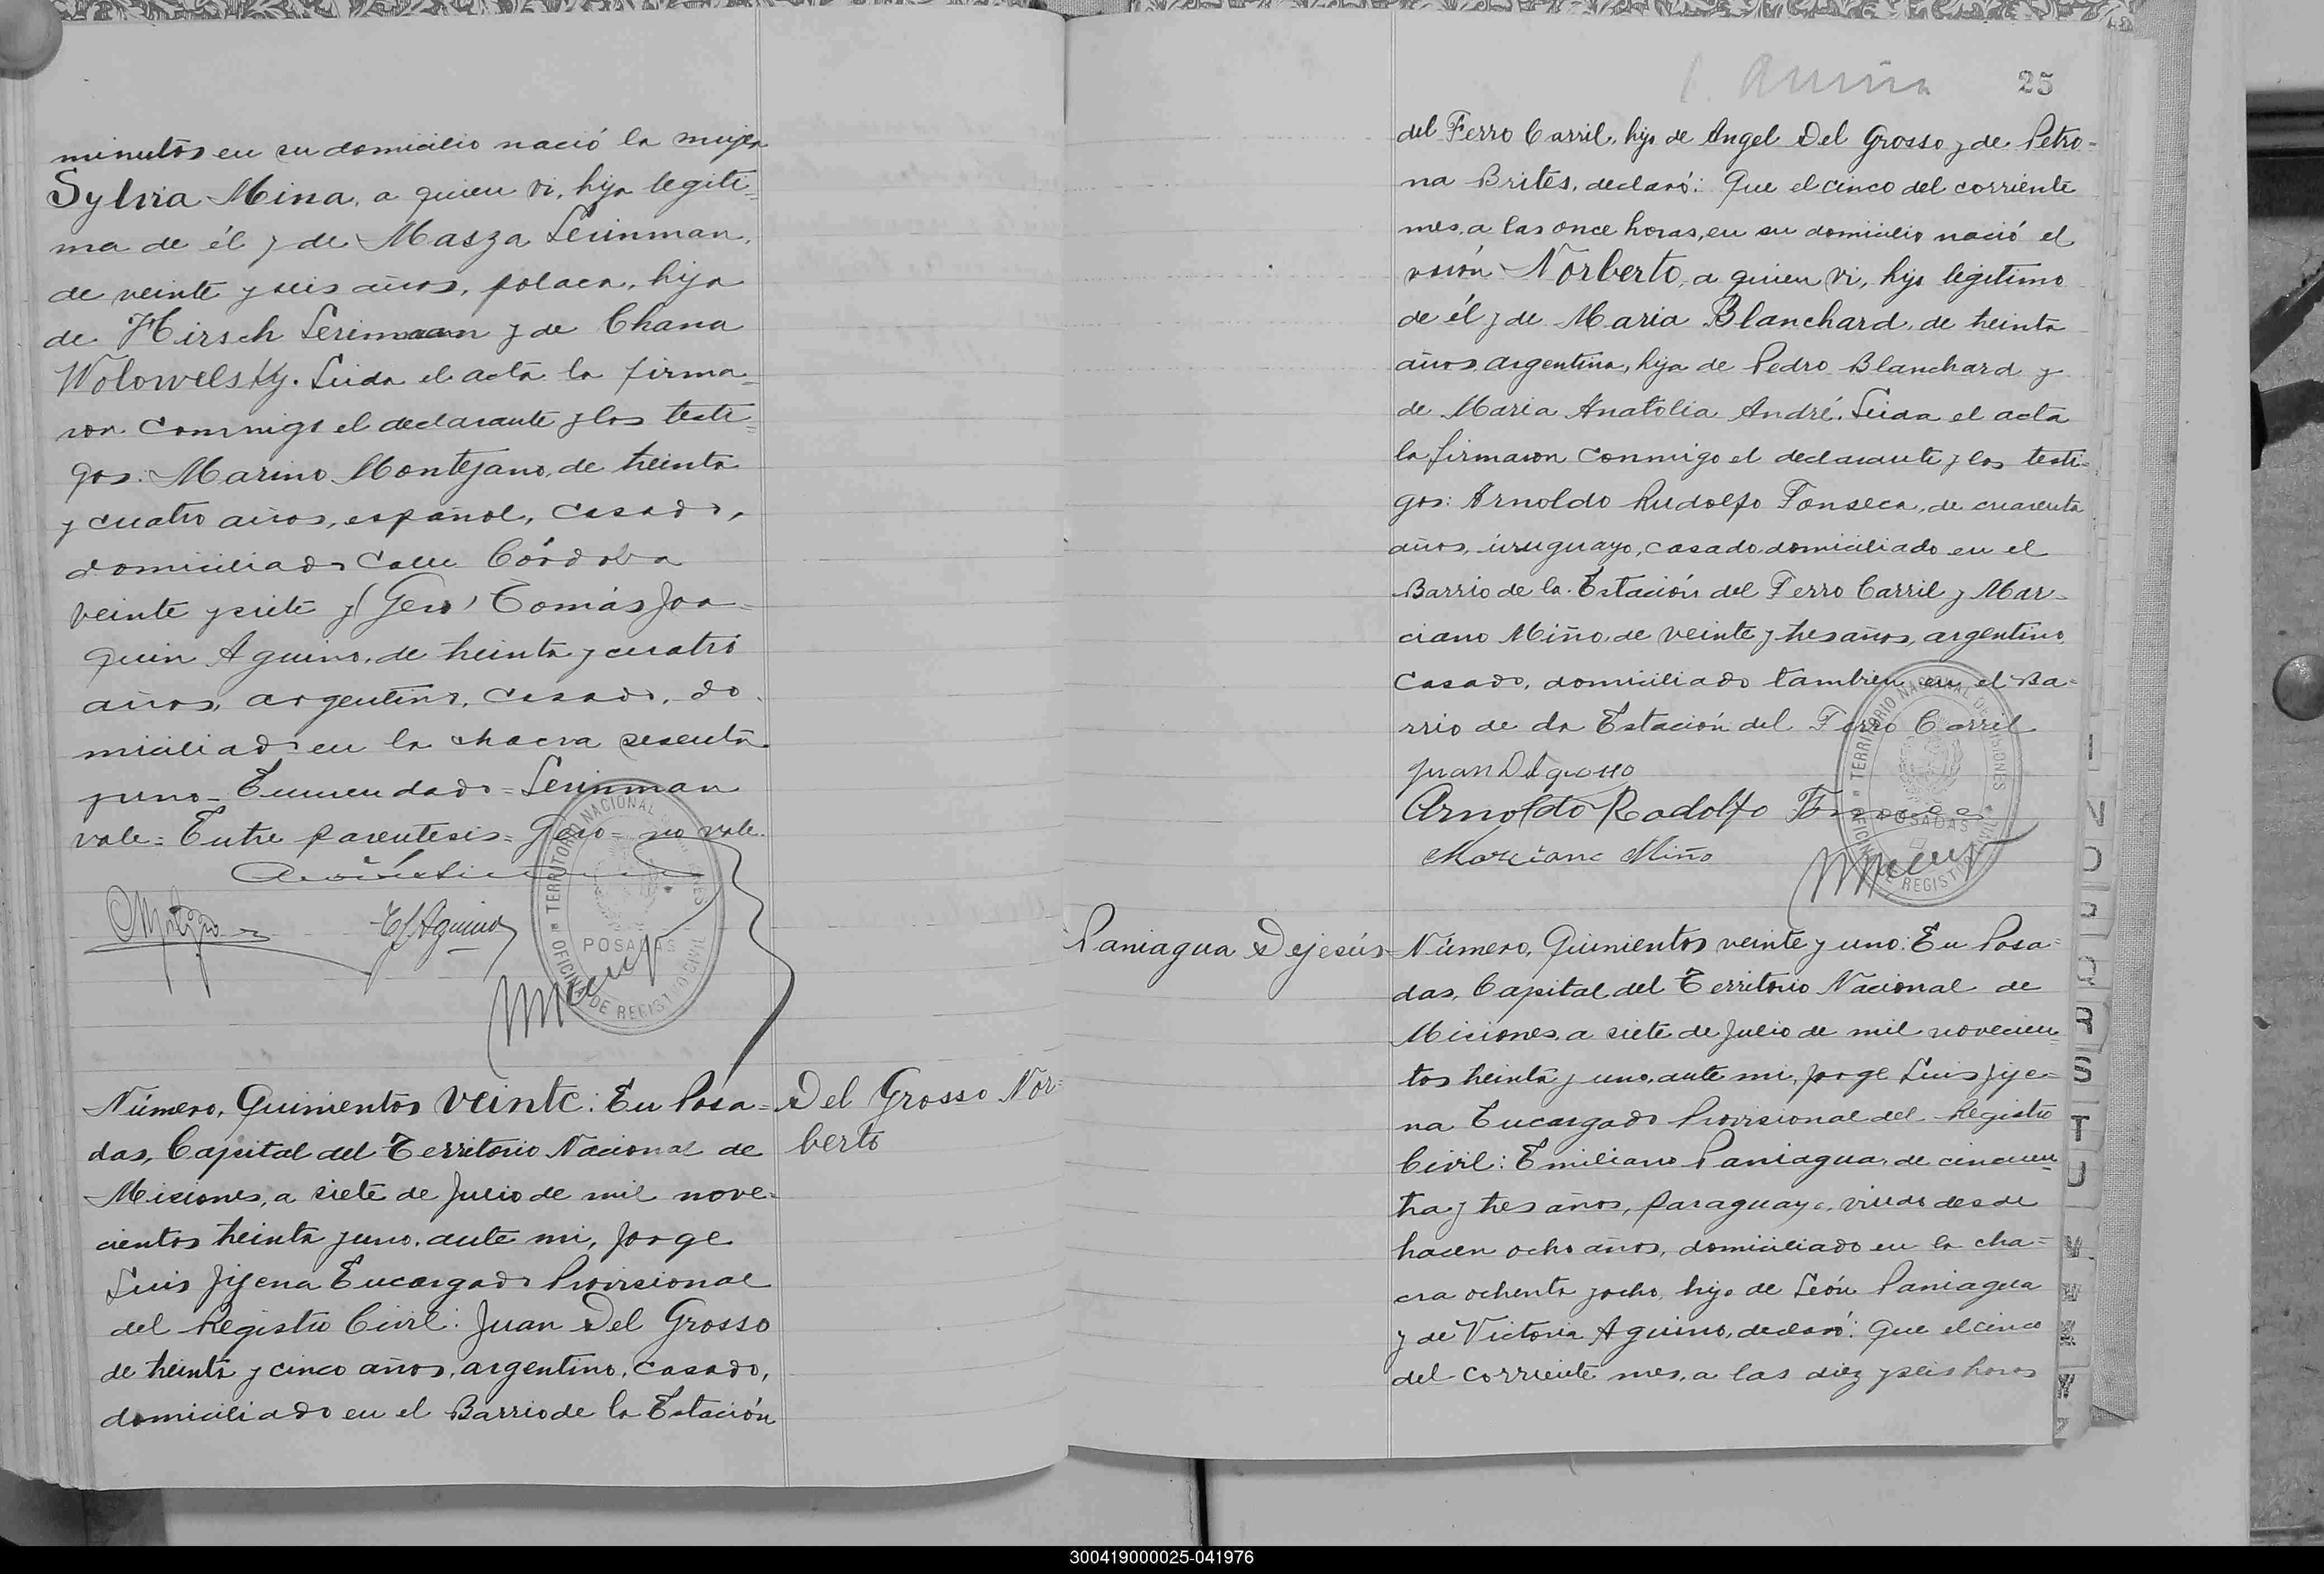 minutos en su domicilio nació la mujer
Sylvia Mina, a quien vi, hija legiti=
ma de él y de Masza Serinman,
de veinte y seis años, polaca, hija
de Hirsch Serinman y de Chana
Wolowelsky. Leida el acta la firma=
ron conmigo el declarante y los testi=
gos: Marino Montejano, de treinta
y cuatro años, español, casado,
domiciliado calle Córdoba
veinte y siete y (Gero) Tomás Joa=
quin Aquino, de treinta y cuatro
años, argentino, casado, do
miciliado en la chacra sesenta
y uno_ Enmendado = Serinman
vale = Entre parentesis = Gero = no vale.
T J Aquino
TERRITORIO NACIONAL DE MISIONES
POSADAS
OFICINA DE REGISTRO CIVIL
Número, Quinientos veinte: En Posa=
das, Capital del Territorio Nacional de
Misiones, a siete de Julio de mil nove=
cientos treinta y uno, ante mi, Jorge
Luis Jijena Encargado Provisional
del Registro Civil: Juan Del Grosso
de treinta y cinco años, argentino, casado,
domiciliado en el Barrio de la Estación
Del Grosso Nor=
berto
25
del Ferro Carril, hijo de Angel Del Grosso y de Petro=
na Brites, declaró: Que el cinco del corriente
mes, a las once horas, en su domicilio nació el
varón Norberto, a quien vi, hijo legitimo
de él y de Maria Blanchard, de treinta
años, argentina, hija de Pedro Blanchard y
de Maria Anatolia André. Leida el acta
la firmaron conmigo el declarante y los testi=
gos: Arnoldo Rudolfo Fonseca, de cuarenta
años, uruguayo, casado, domiciliado en el
Barrio de la Estación del Ferro Carril y Mar=
ciano Miño, de veinte y tres años, argentino,
casado, domiciliado tambien en el Ba=
rrio de la Estación del Ferro Carril
Juan Delgrosso
Arnoldo Rodolfo Fonseca
Marciano Miño
TERRITORIO NACIONAL DE MISIONES
POSADAS
OFICINA DE REGISTRO CIVIL
Paniagua Dejesús
Número, Quinientos veinte y uno: En Posa=
das, Capital del Territorio Nacional de
Misiones, a siete de Julio de mil novecien=
tos treinta y uno, ante mi, Jorge Luis Jije=
na Encargado Provisional del Registro
Civil: Emiliano Paniagua, de cincuen=
ta y tres años, paraguayo, viudo desde
hacen ocho años, domiciliado en la cha=
cra ochenta y ocho, hijo de León Paniagua
y de Victoria Aquino, declaró: Que el cinco
del corriente mes, a las diez y seis horas
R
S
T
U
300419000025-041976